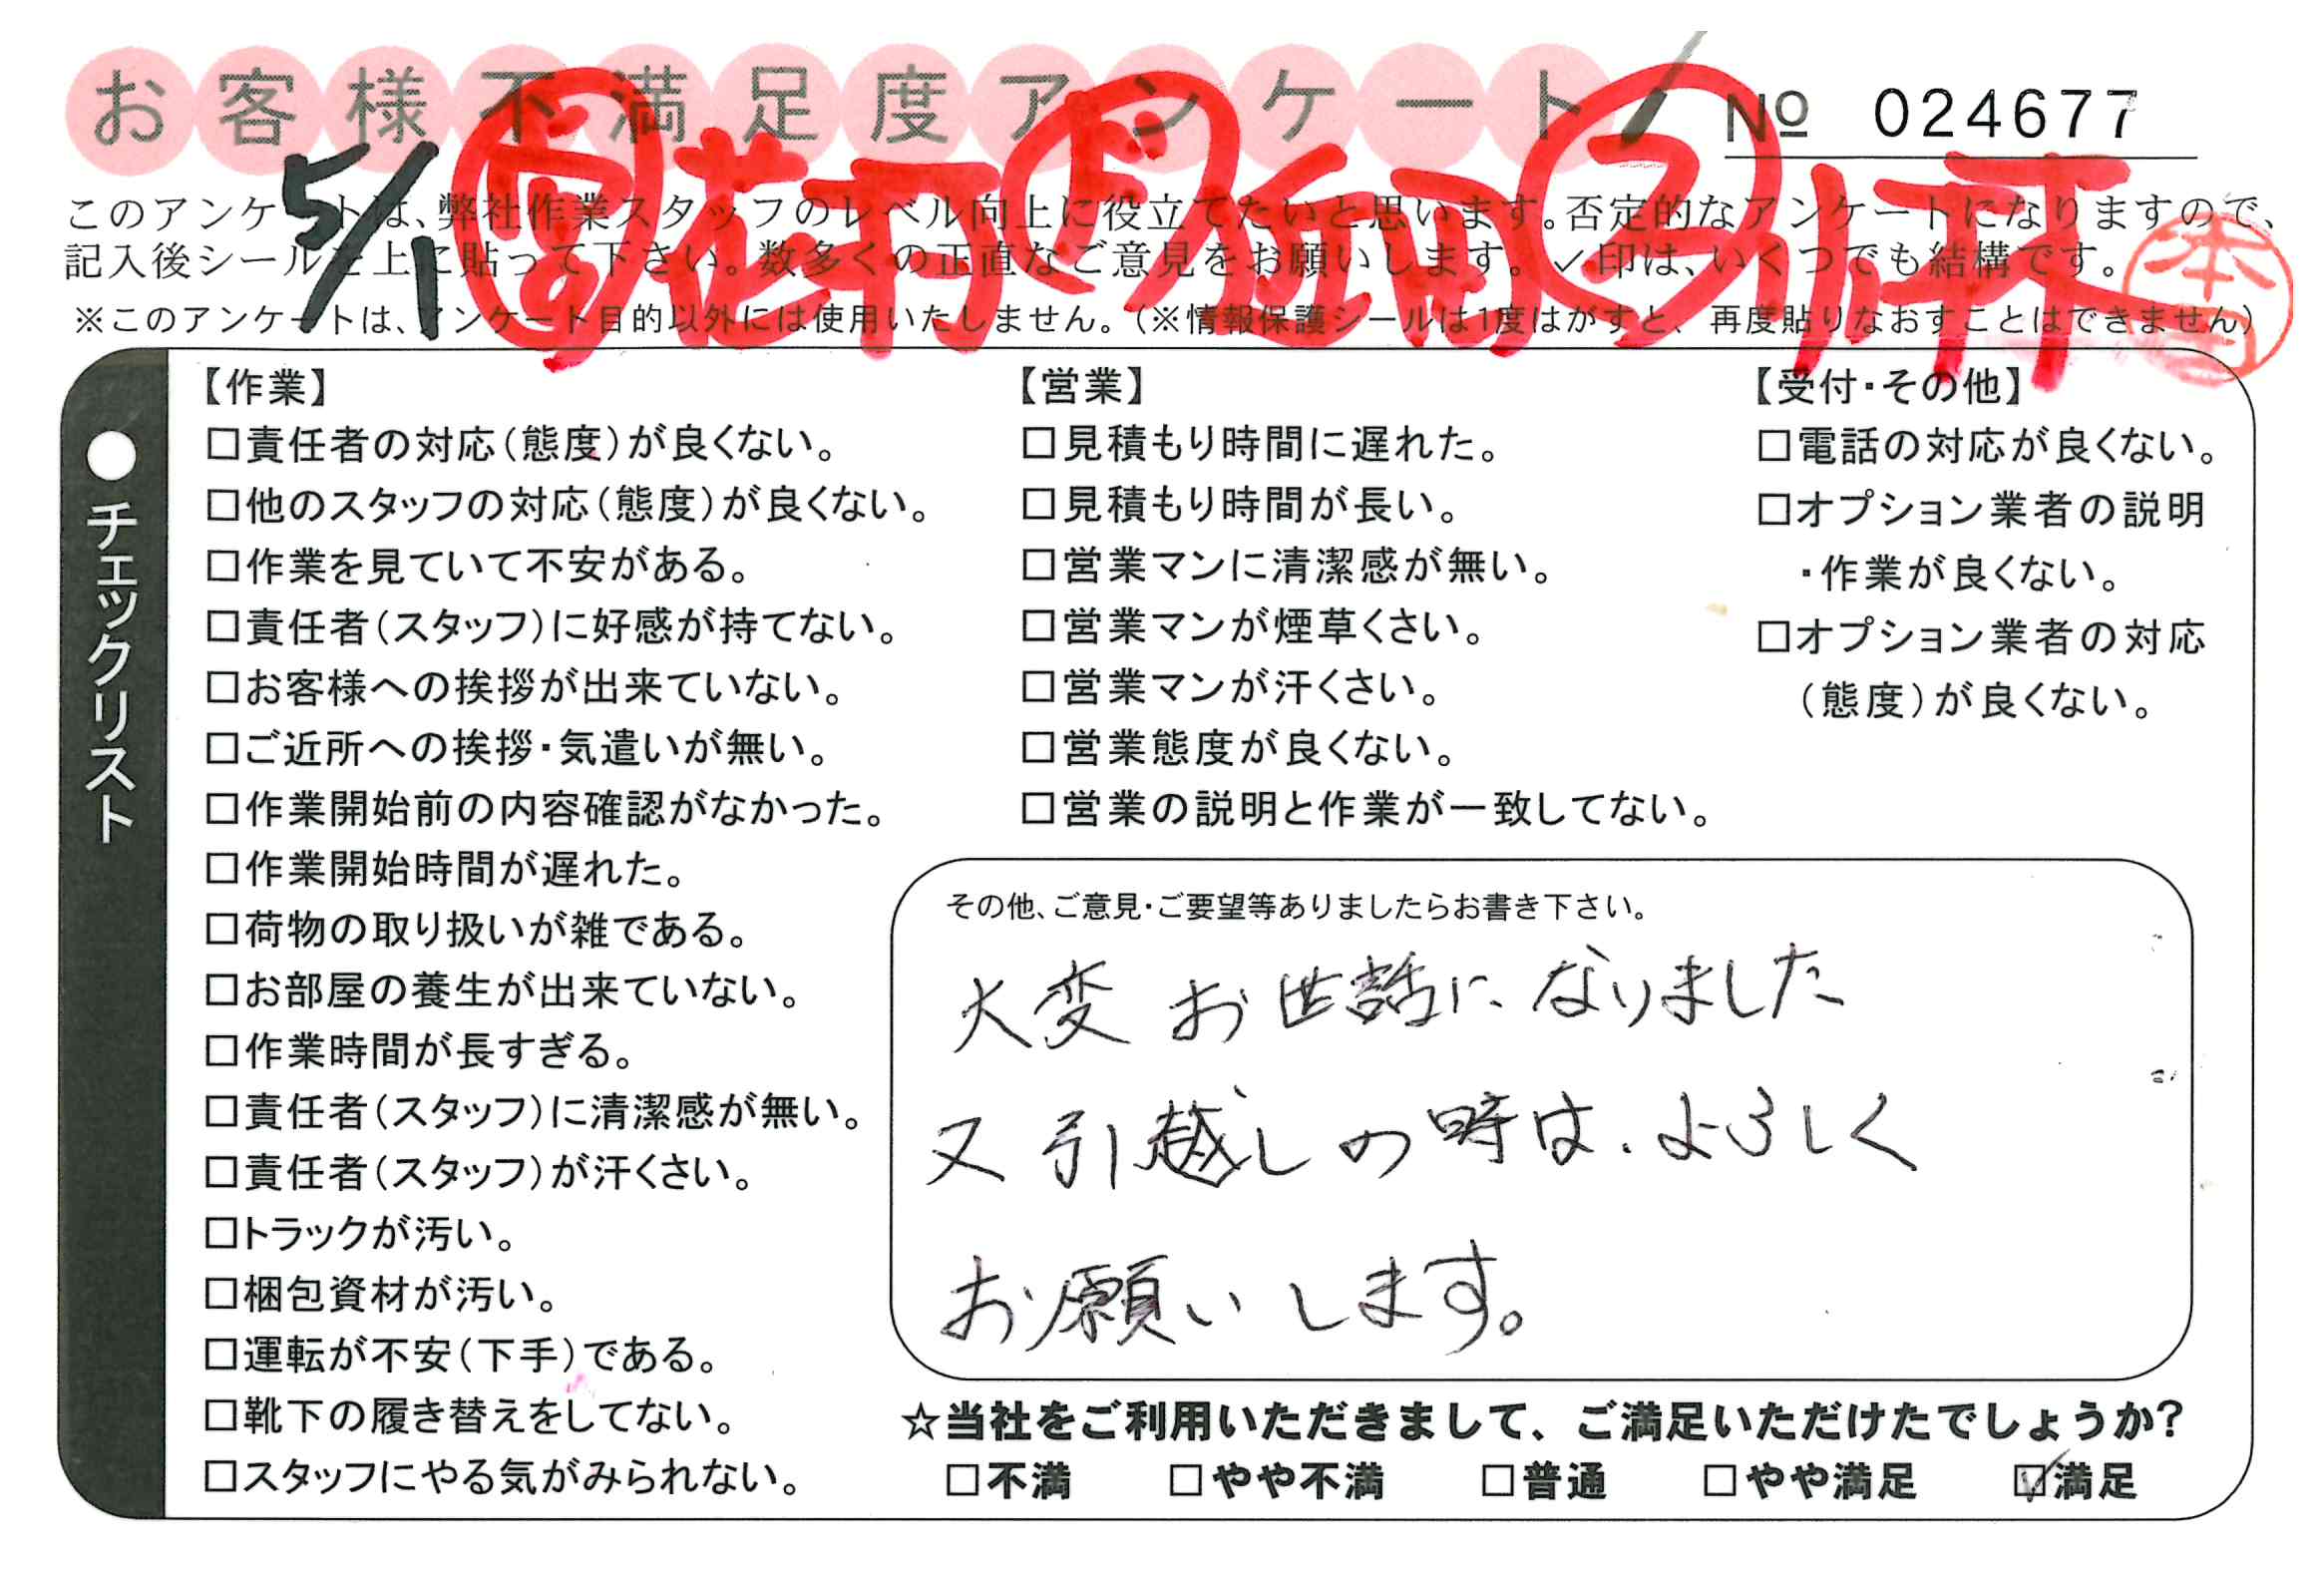 お客様不満足度アンケート
No 024677
5/1
このアンケートは、弊社作業スタッフのレベル向上に役立てたいと思います。否定的なアンケートになりますので、
記入後シールを上に貼って下さい。数多くの正直なご意見をお願いします。✓印は、いくつでも結構です。
※このアンケートは、アンケート目的以外には使用いたしません。(※情報保護シールは1度はがすと、再度貼りなおすことはできません)
●チェックリスト
【作業】
□責任者の対応(態度)が良くない。
□他のスタッフの対応(態度)が良くない。
□作業を見ていて不安がある。
□責任者(スタッフ)に好感が持てない。
□お客様への挨拶が出来ていない。
□ご近所への挨拶・気遣いが無い。
□作業開始前の内容確認がなかった。
□作業開始時間が遅れた。
□荷物の取り扱いが雑である。
□お部屋の養生が出来ていない。
□作業時間が長すぎる。
□責任者(スタッフ)に清潔感が無い。
□責任者(スタッフ)が汗くさい。
□トラックが汚い。
□梱包資材が汚い。
□運転が不安(下手)である。
□靴下の履き替えをしてない。
□スタッフにやる気がみられない。
【営業】
□見積もり時間に遅れた。
□見積もり時間が長い。
□営業マンに清潔感が無い。
□営業マンが煙草くさい。
□営業マンが汗くさい。
□営業態度が良くない。
□営業の説明と作業が一致してない。
【受付・その他】
□電話の対応が良くない。
□オプション業者の説明
・作業が良くない。
□オプション業者の対応
(態度)が良くない。
その他、ご意見・ご要望等ありましたらお書き下さい。
大変お世話になりました
又引越しの時は、よろしく
お願いします。
☆当社をご利用いただきまして、ご満足いただけたでしょうか?
□不満 □やや不満 □普通 □やや満足 ☑満足